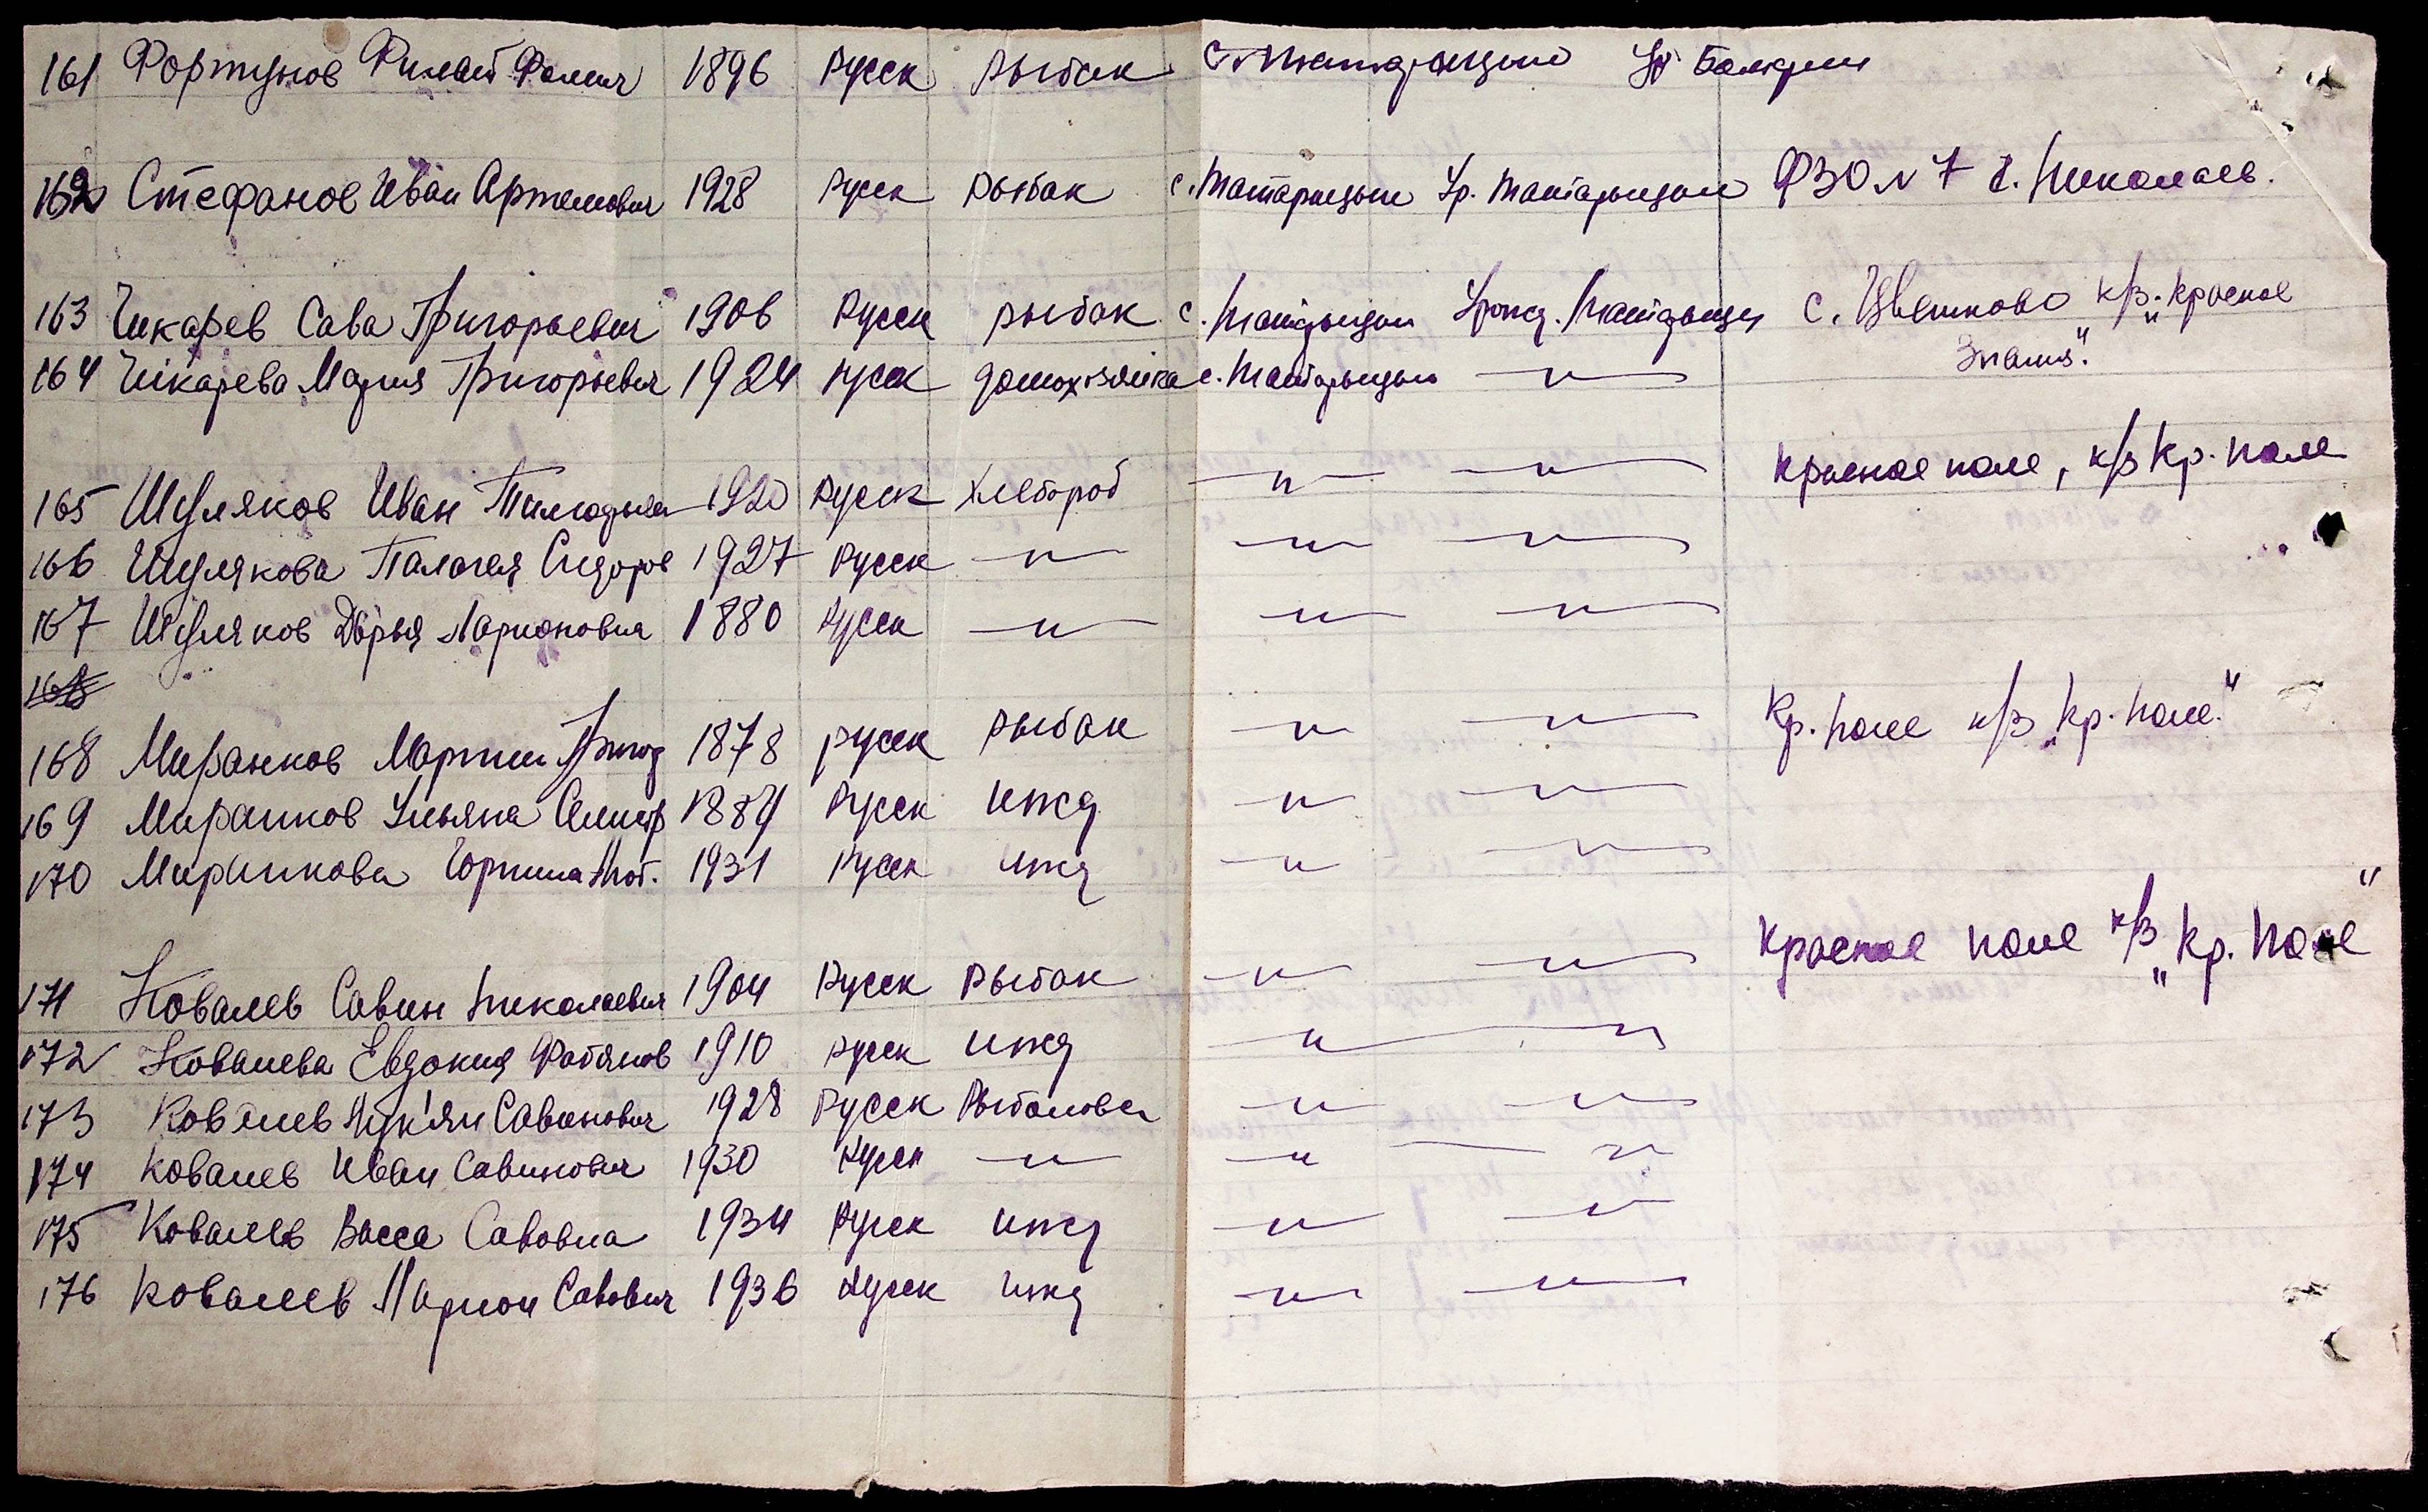 161 Фортунов Филат Фомич 1896 Русск Рыбак с. Ур Болкрии
162 Стефанов Иван Артемович 1928 Русск Рыбак с. Татарицыи Ур. Татарицыи ФЗО N 7 г. Николаев.
163 Чикарев Сава Григорьевич 1906 Русск рыбак с. Татарицыи Урожд. с. Цветково к/з. „Красное
Знамя".
164 Чикарева Мария Григорьевич 1924 русск домохозяйка с. Татарицыи —〃—
165 Шуляков Иван 1920 Русск Хлебороб —〃— —〃— Красное поле, к/з Кр. поле
166 Шулякова Палагея Сидоров 1927 Русск —〃— —〃— —〃—
167 Шуляков Дарья Ларионовна 1880 Русск —〃— —〃— —〃—
168
168 Миранков Мартин Григ 1878 русск рыбак —〃— —〃— Кр. поле к/з „Кр. поле."
169 Миранков Ульяна 1884 Русск ижд —〃— —〃—
170 Миранкова 1931 Русск ижд —〃— —〃—
171 Ковалев Савин Николаевич 1904 Русск Рыбак —〃— —〃— Красное поле к/з „Кр. Поле"
172 Ковалева Евдокия Фотянов 1910 русск ижд —〃— —〃—
173 Ковалев Лук'ян Савинович 1928 Русск Рыболовец —〃— —〃—
174 Ковалев Иван Савинович 1930 Русск —〃— —〃— —〃—
175 Ковалев Васса Савовна 1934 Русск ижд —〃— —〃—
176 Ковалев Ларион Савович 1936 Русск ижд —〃— —〃—